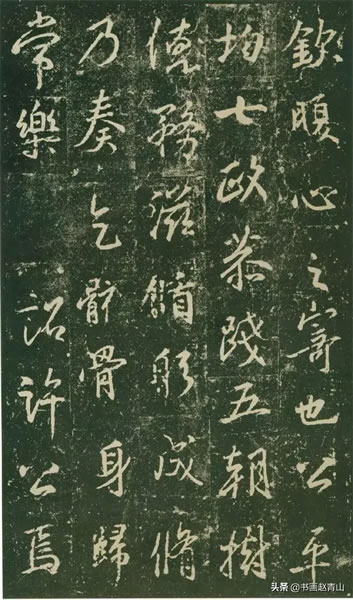 欽腹心之寄也公平
均七政恭踐五朝樹
德務滋躬成脩
乃奏乞骸骨身歸
常樂 詔許公焉
头条 @书画赵青山